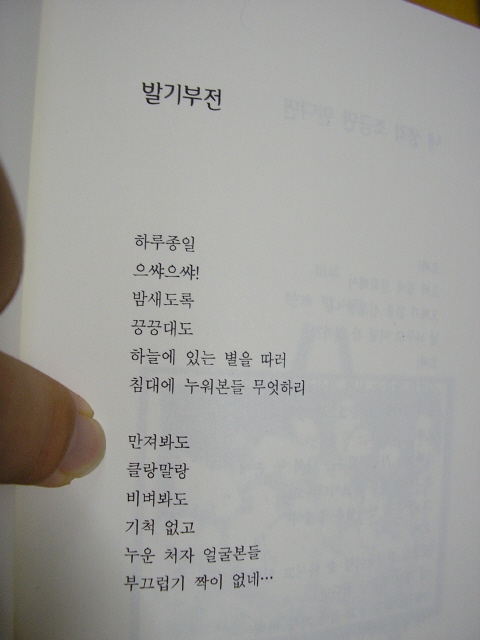 발기부전
하루종일
으쌰으쌰!
밤새도록
끙끙대도
하늘에 있는 별을 따러
침대에 누워본들 무엇하리
만져봐도
클랑말랑
비벼봐도
기척 없고
누운 처자 얼굴본들
부끄럽기 짝이 없네…